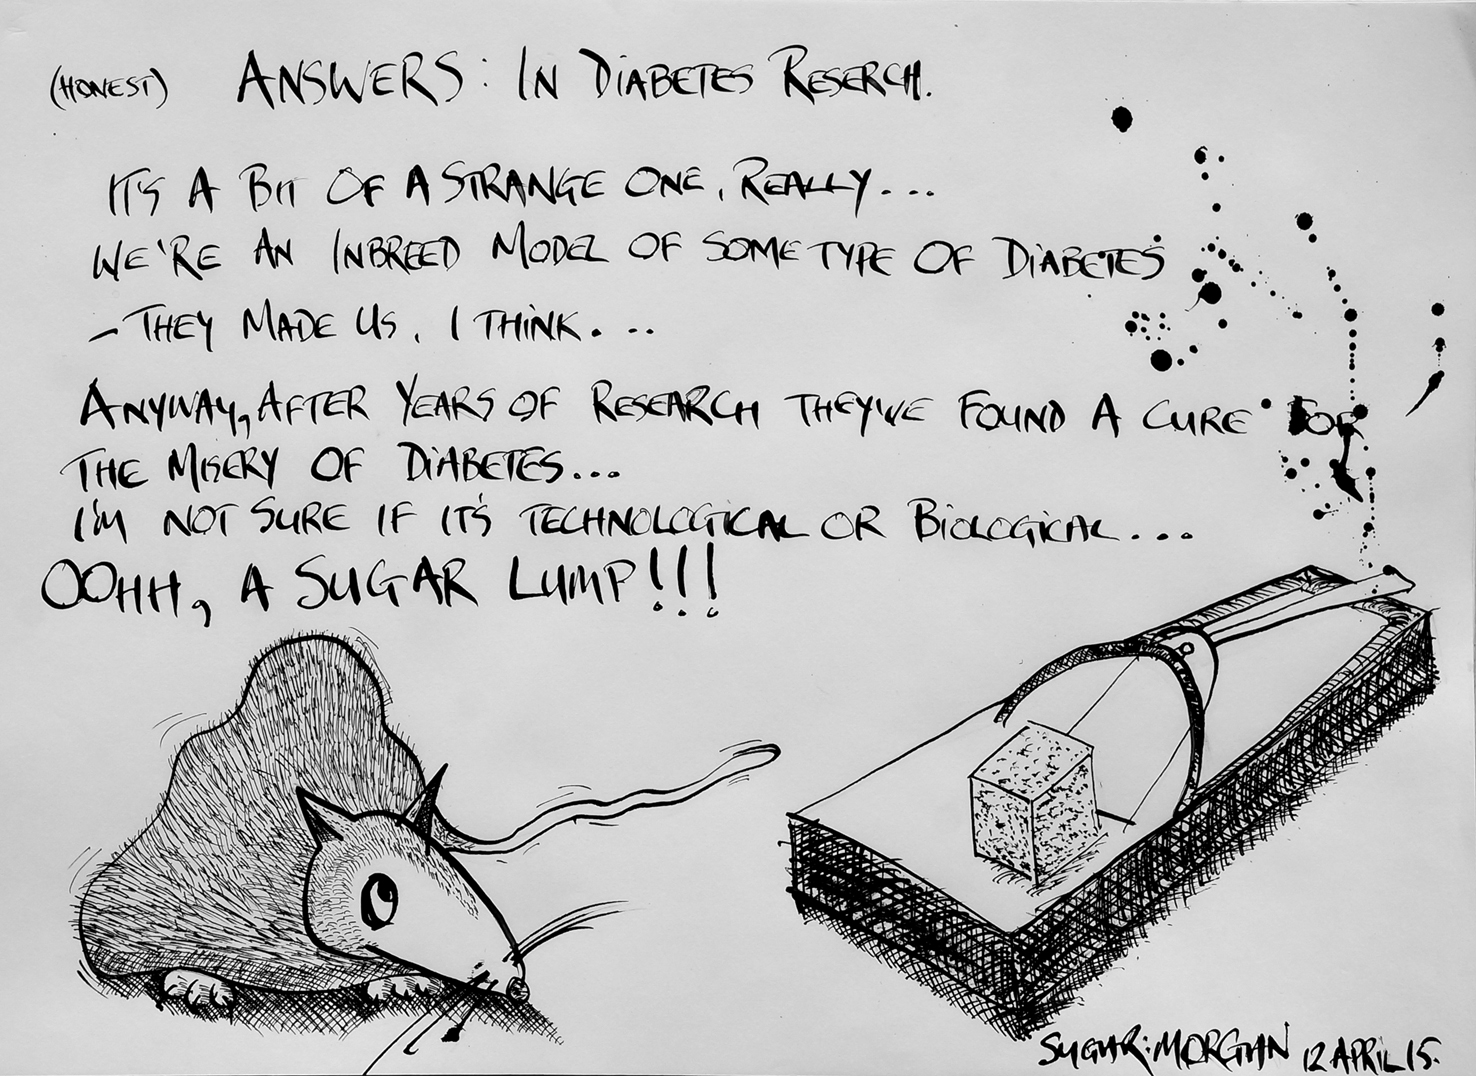 (HONEST) ANSWERS: IN DIABETES RESERCH.
IT'S A BIT OF A STRANGE ONE, REALLY....
WE'RE AN INBREED MODEL OF SOME TYPE OF DIABETES
- THEY MADE US, I THINK...
ANYWAY, AFTER YEARS OF RESEARCH THEY'VE FOUND A CURE FOR
THE MISERY OF DIABETES...
I'M NOT SURE IF IT'S TECHNOLOGICAL OR BIOLOGICAL....
OOHH, A SUGAR LUMP!!!
SUGAR:MORGAN 12 APRIL 15.